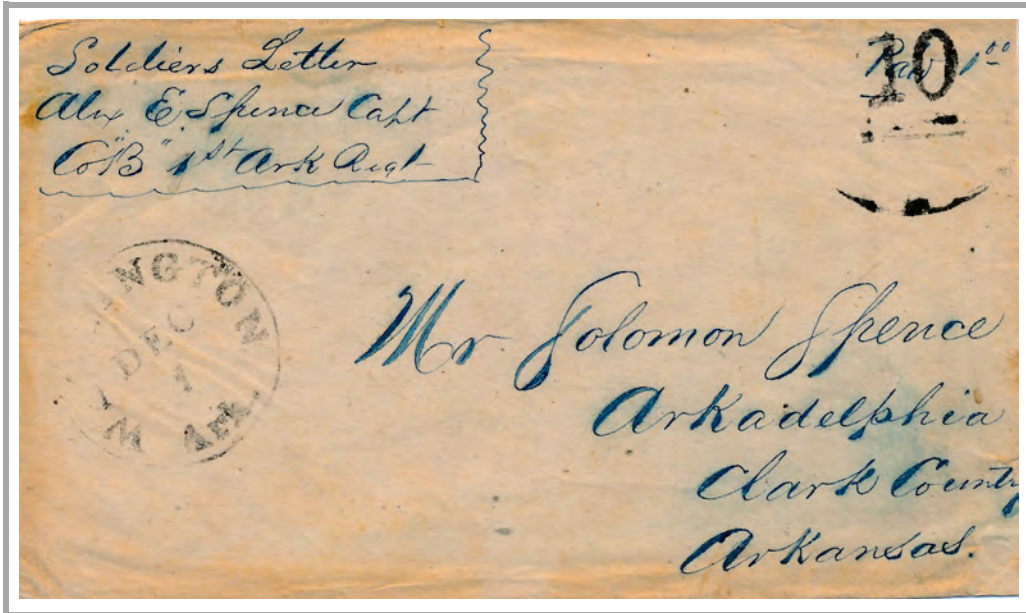 Soldiers Letter
Alex E Spence Capt
Co "B" 1st Ark Regt
10
1 00
W INGTON
DEC
1
Ark.
Mr. Solomon Spence
Arkadelphia
Clark County
Arkansas.